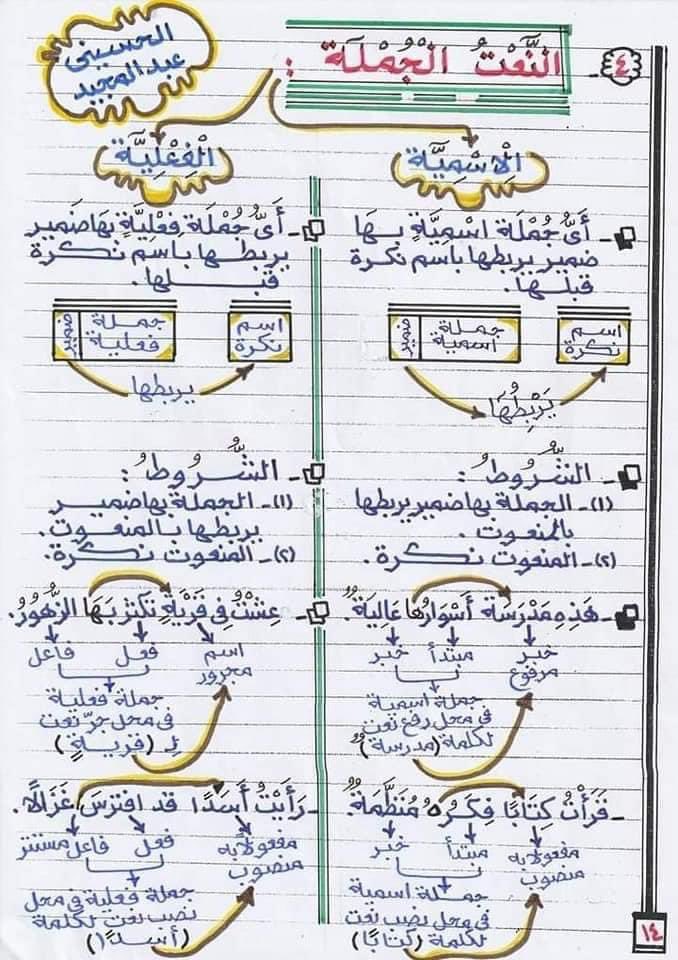 ٤- النَّعْتُ الْجُمْلَة :
الحسيني
عبدالمجيد
الْاسْمِيَّة
أَىُّ جُمْلَة اسْمِيَّةٍ بِهَا
ضمير يربطها باسم نكرة
قبلها.
اسم
نكرة
جملة
اسمية
ضمير
يَرْبِطُهَا
- الشُّرُوطُ :
(١)- الجملة بها ضمير يربطها
بالمنعوت.
(٢)- المنعوت نكرة.
- هَذِهِ مَدْرَسَة أَسْوَارُها عَالِيَةٌ.
خبر
مرفوع
مبتدأ
خبر
جملة اسمية
فى محل رفع نعت
لكلمة (مدرسة)
- قَرَأْتُ كِتَابًا فِكَرُهُ مُنَظَّمَةٌ.
مفعولا به
منصوب
مبتدأ
خبر
جملة اسمية
فى محل نصب نعت
لكلمة (كتابًا)
الْفِعْلِيَّة
أَىُّ جُمْلَة فِعْلِيَّةٍ بها ضمير
يربطها باسم نكرة
قبلها.
اسم
نكرة
جملة
فعلية
ضمير
يربطها
- الشُّرُوطُ :
(١)- الجملة بها ضمير
يربطها بالمنعوت.
(٢)- المنعوت نكرة.
- عِشْتُ فِى قَرْيَةٍ تكثر بِهَا الزُّهُورُ.
اسم
مجرور
فعل
فاعل
جملة فعلية
فى محل جرّ نعت
لِـ (قريةٍ)
- رَأَيْتُ أَسَدًا قد افترسَ غَزَالًا.
مفعولا به
منصوب
فعل
فاعل مستتر
جملة فعلية فى محل
نصب نعت لكلمة
(أسدًا)
١٤